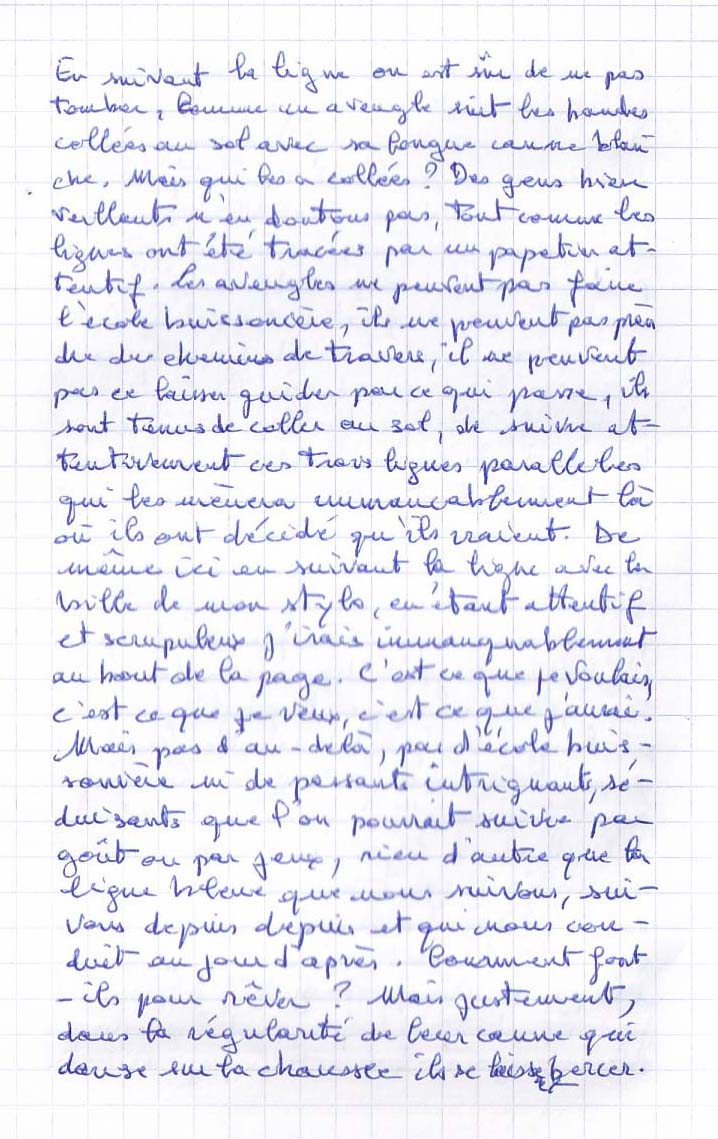 En suivant la ligne on est sûr de ne pas
tomber, comme un aveugle suit les bandes
collées au sol avec sa longue canne blan
che. Mais qui les a collées ? Des gens bien
veillants n'en doutons pas, tout comme les
lignes ont été tracées par un papetier at-
tentif. Les aveugles ne peuvent pas faire
l'école buissonière, ils ne peuvent pas pren
dre des chemins de travers, il ne peuvent
pas ce laisser guider par ce qui passe, ils
sont tenus de coller au sol, de suivre at-
tentivement ces trois lignes parallèles
qui les mènera immancablement là
où ils ont décidé qu'ils iraient. De
même ici en suivant la ligne avec la
bille de mon stylo, en étant attentif
et scrupuleux j'irais immanquablement
au bout de la page. C'est ce que je voulais,
c'est ce que je veux, c'est ce que j'aurai.
Mais pas d'au-delà, pas d'école buis-
sonière ni de passants intriguants, sé-
duisants que l'on pourrait suivre par
goût ou par jeux, rien d'autre que la
ligne bleue que nous suivons, sui-
vons depuis depuis et qui nous con-
duit au jour d'après. Comment font
-ils pour rêver ? Mais justement,
dans la régularité de leur canne qui
danse sur la chaussée ils se laisse bercer.